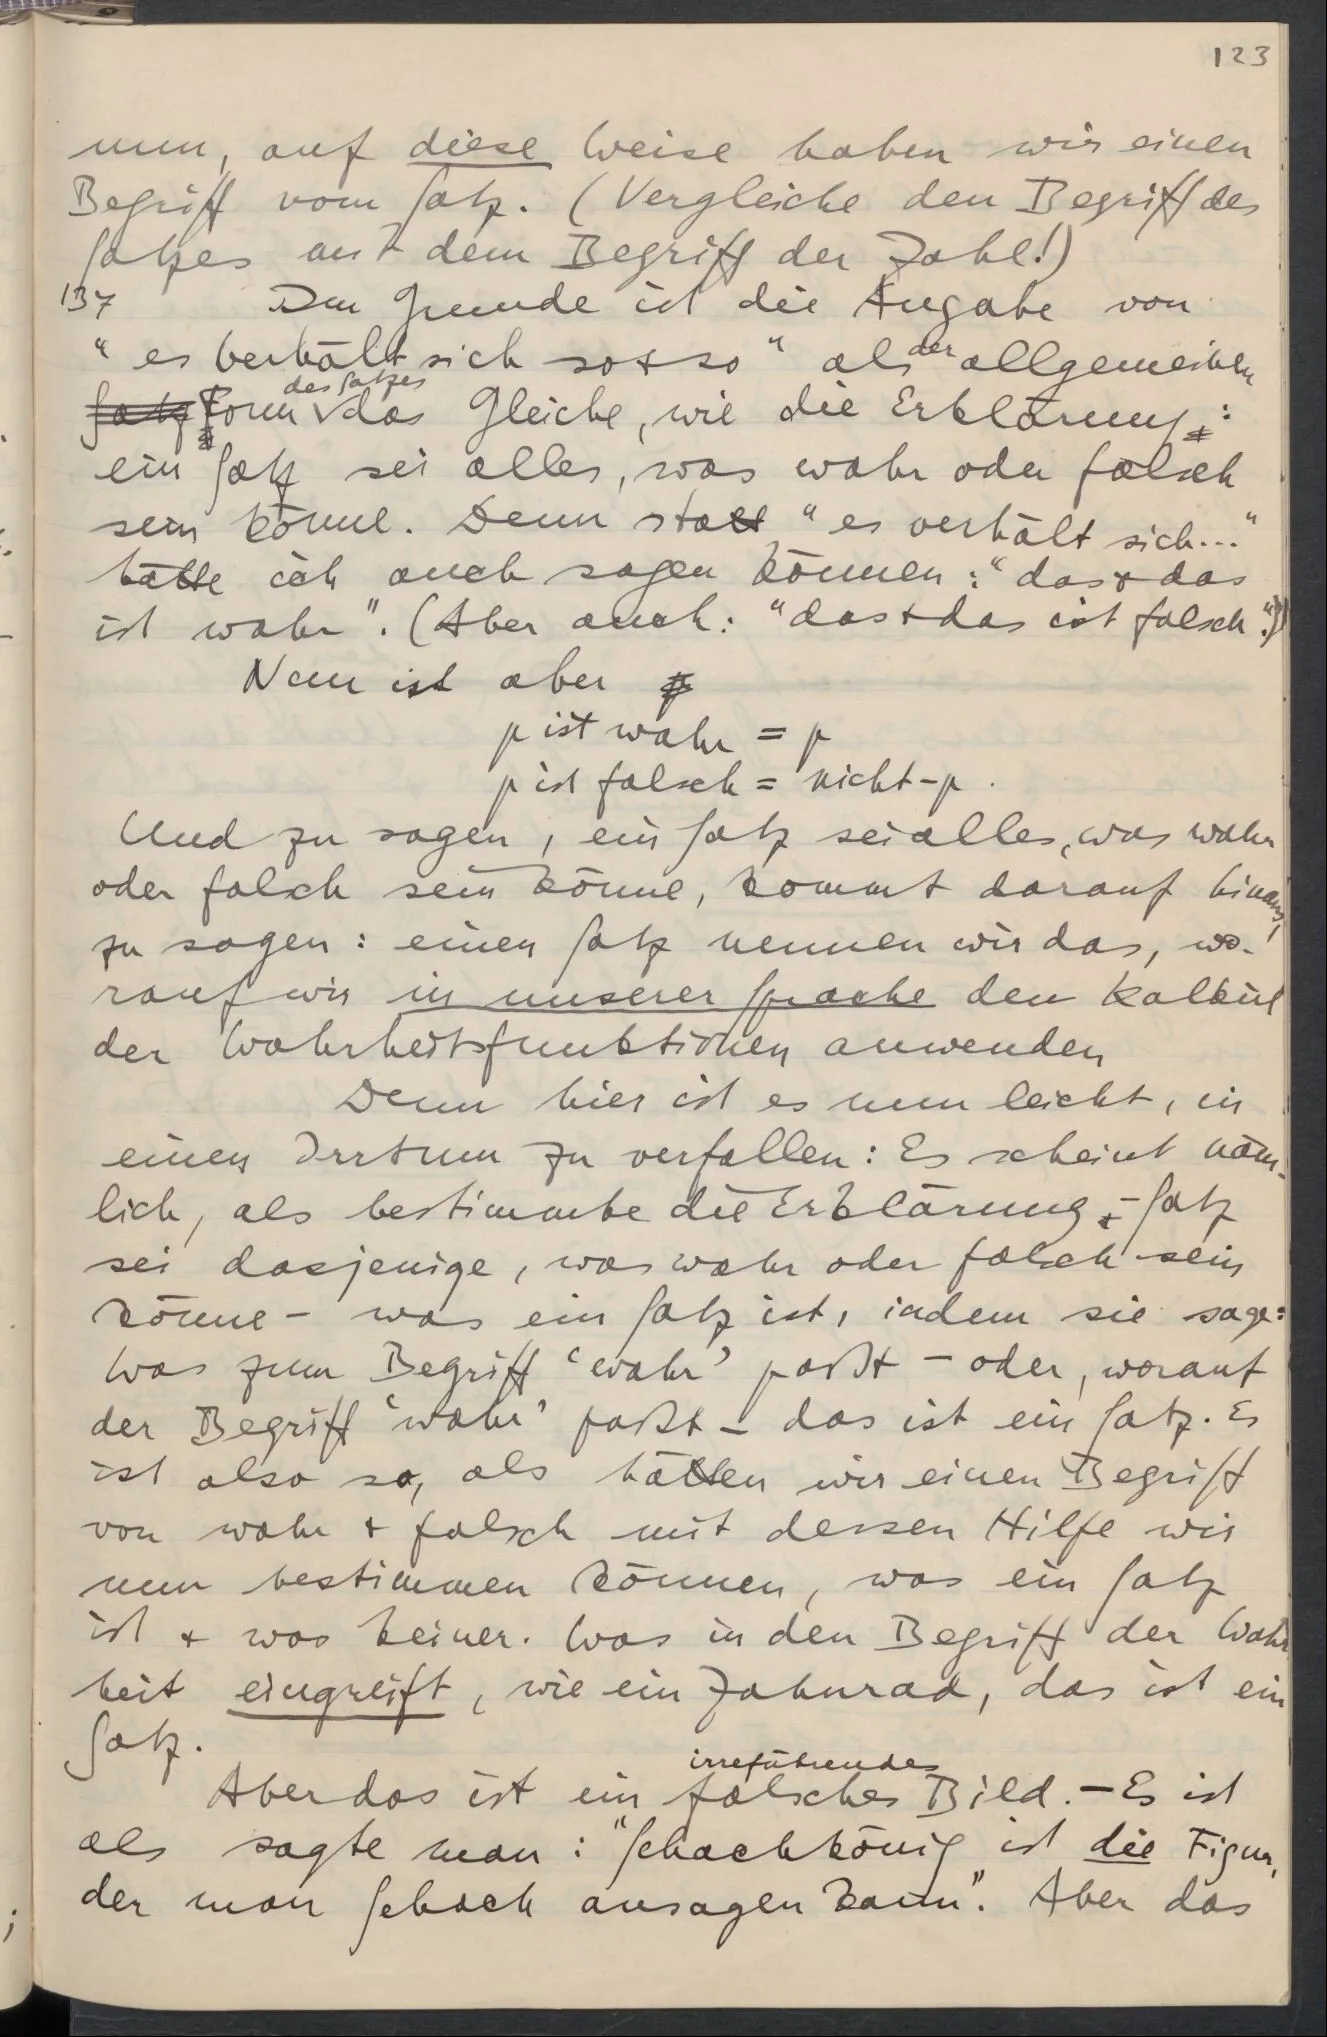 123
nun, auf diese Weise haben wir einen
Begriff vom Satz. (Vergleiche den Begriff des
Satzes mit dem Begriff der Zahl!)
137 Im Grunde ist die Angabe von
“es verhält sich so + so” als der allgemeinen
Satz Form des Satzes das Gleiche, wie die Erklärung:
ein Satz sei alles, was wahr oder falsch
sein könne. Denn statt “es verhält sich...”
hätte ich auch sagen können: “das + das
ist wahr”. (Aber auch: “das + das ist falsch”.)
Nun ist aber
p ist wahr = p
p ist falsch = nicht-p.
Und zu sagen, ein Satz sei alles, was wahr
oder falsch sein könne, kommt darauf hinaus,
zu sagen: einen Satz nennen wir das, wo-
rauf wir in unserer Sprache den Kalkül
der Wahrheitsfunktionen anwenden
Denn hier ist es nun leicht, in
einen Irrtum zu verfallen: Es scheint näm-
lich, als bestimmte die Erklärung, – Satz
sei dasjenige, was wahr oder falsch sein
könne – was ein Satz ist, indem sie sage:
Was zum Begriff ‘wahr’ paßt – oder, worauf
der Begriff ‘wahr’ paßt – das ist ein Satz. Es
ist also so, als hätten wir einen Begriff
von wahr + falsch mit dessen Hilfe wir
nun bestimmen können, was ein Satz
ist + was keiner. Was in den Begriff der Wahr
heit eingreift, wie ein Zahnrad, das ist ein
Satz.
irreführendes
Aber das ist ein falsches Bild. – Es ist
als sagte man: “Schachkönig ist die Figur,
der man Schach ansagen kann”. Aber das